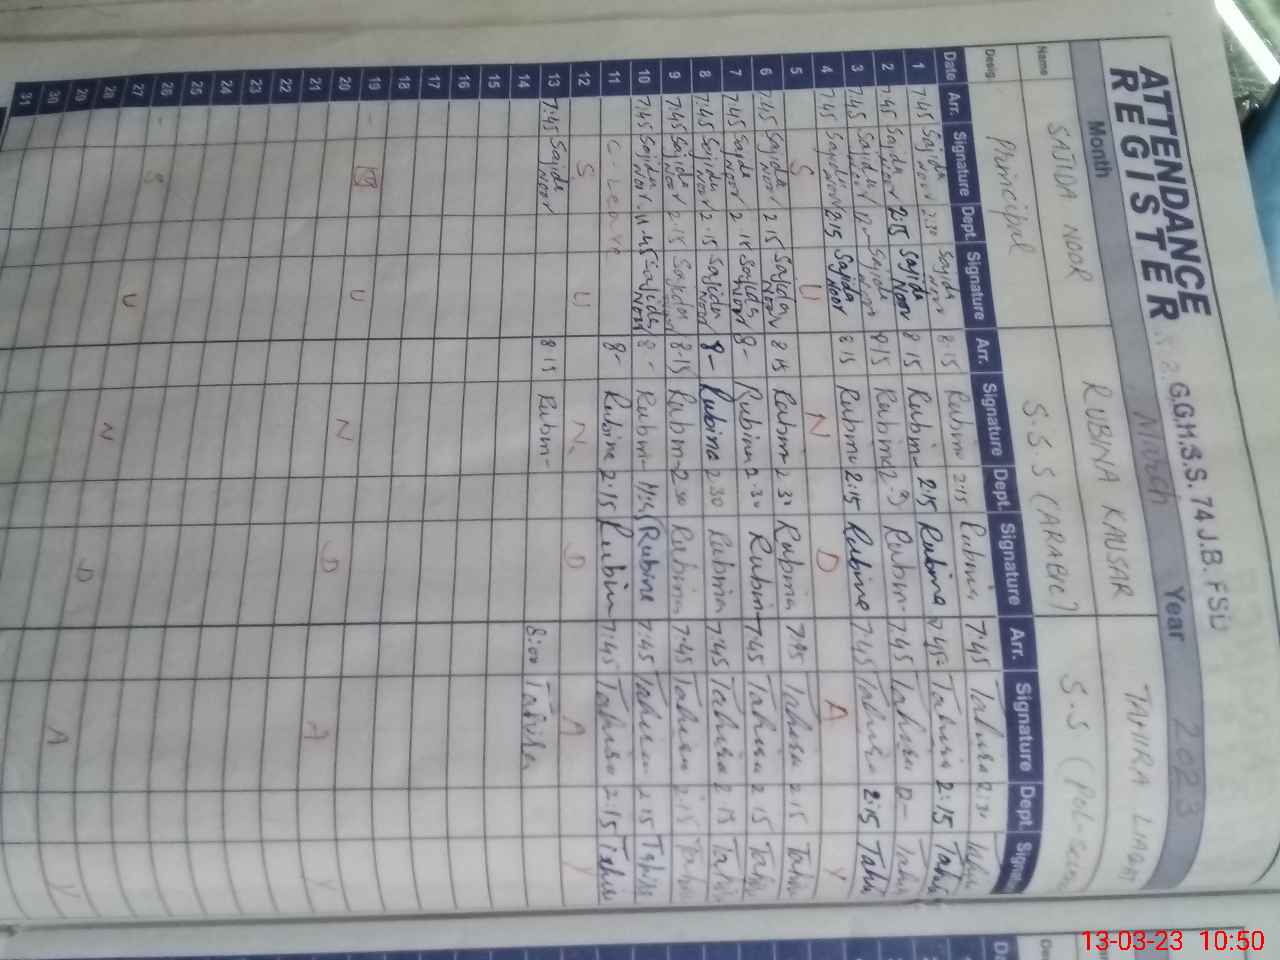 ATTENDANCE REGISTER G.G.H.S.S. 74 J.B. FSD
Month March Year 2023
Name SAJIDA NOOR RUBINA KAUSAR TAHIRA LIAQAT
Desig. Principal S.S (ARABIC) S.S (POL-Scien
Date Arr. Signature Dept. Signature Arr. Signature Dept. Signature Arr. Signature Dept. Signat
1 7:45 Sajida Noor 2:30 Sajida Noor 8:15 Rubina 2:15 Rubina 7:45 Tahira 2:30 Tahir
2 7:45 Sajida Noor 2:15 Sajida Noor 8 15 Rubina 2:15 Rubina 7:45 Tahira 2:15 Tahir
3 7:45 Sajida Noor Sajida Noor 8 15 Rubina Rubina 7:45 Tahira Tahir
4 7:45 Sajida Noor 2:15 Sajida Noor 8 15 Rubina 2:15 Rubina 7:45 Tahira 2:15 Tahir
5 S U N D A Y
6 7:45 Sajida Noor 2 15 Sajida Noor 8 15 Rubina 2 30 Rubina 7:45 Tahira 2 15 Tahir
7 7:45 Sajida Noor 2 15 Sajida Noor 8- Rubina 2.30 Rubina 7:45 Tahira 2 15 Tahir
8 7:45 Sajida Noor 2.15 Sajida Noor 8- Rubina 2 30 Rubina 7:45 Tahira 2 15 Tahir
9 7:45 Sajida Noor 2.15 Sajida Noor 8-15 Rubina 2 30 Rubina 7:45 Tahira 2:15 Tahir
10 7:45 Sajida Noor 11.45 Sajida Noor 8- Rubina 11:45 Rubina 7:45 Tahira 2:15 Tahir
11 C-Leave 8- Rubina 2:15 Rubina 7:45 Tahira 2:15 Tahir
12 S U N D A Y
13 7:45 Sajida Noor 8 15 Rubina 8:00 Tahira
14
15
16
17
18
19 S U N D A Y
20
21
22
23
24
25
26 S U N D A Y
27
28
29
30
31
13-03-23 10:50